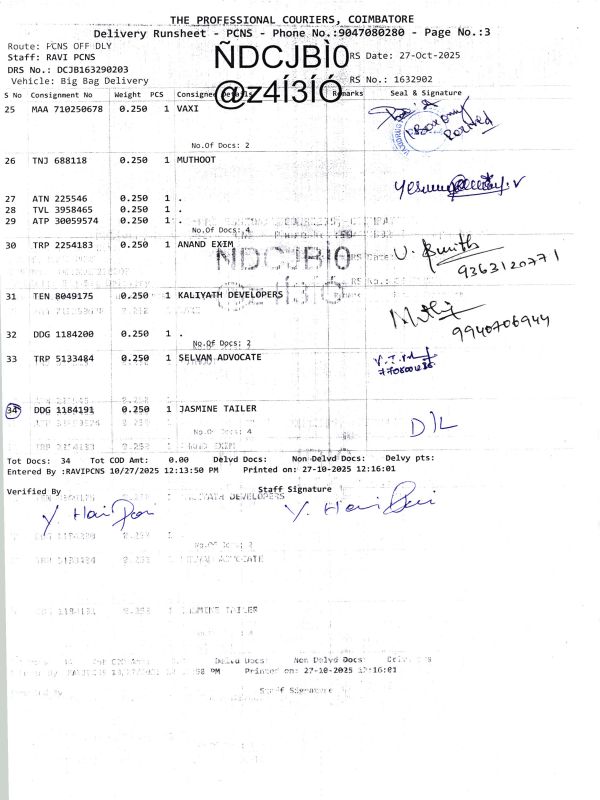 THE PROFESSIONAL COURIERS, COIMBATORE
Delivery Runsheet - PCNS - Phone No.:9047080280 - Page No.:3
Route: PCNS OFF DLY
Staff: RAVI PCNS RS Date: 27-Oct-2025
ÑDCJBÌ0
DRS No.: DCJB163290203
Vehicle: Big Bag Delivery RS No.: 1632902
@z4Í3ÍÓ
S No Consignment No Weight PCS Consignee Details Remarks Seal & Signature
25 MAA 710250678 0.250 1 VAXI
No.Of Docs: 2
26 TNJ 688118 0.250 1 MUTHOOT
27 ATN 225546 0.250 1 .
28 TVL 3958465 0.250 1 .
29 ATP 30059574 0.250 1 .
No.Of Docs: 4
30 TRP 2254183 0.250 1 ANAND EXIM
ÑDCJBÌ0
9363120771
31 TEN 8049175 0.250 1 KALIYATH DEVELOPERS
9940706944
32 DDG 1184200 0.250 1 .
No.Of Docs: 2
33 TRP 5133484 0.250 1 SELVAM ADVOCATE
34 DDG 1184191 0.250 1 JASMINE TAILER
D/L
No.Of Docs: 4
Tot Docs: 34 Tot COD Amt: 0.00 Delvd Docs: Non Delvd Docs: Delvy pts:
Entered By :RAVIPCNS 10/27/2025 12:13:50 PM Printed on: 27-10-2025 12:16:01
Verified By Staff Signature
Printed on: 27-10-2025 12:16:01
Staff Signature